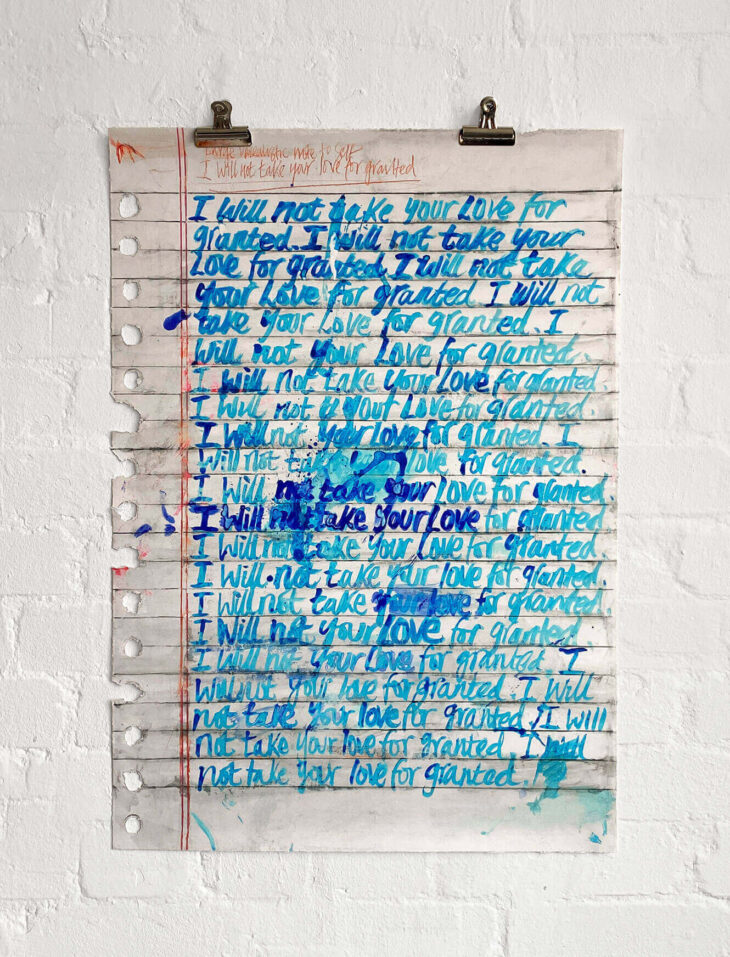 Large Unrealistic note to self
I will not take your love for granted
I will not take your Love for
granted. I will not take your
Love for granted. I will not take
your Love for granted. I will not
take your Love for granted. I
will not your Love for granted.
I will not take your Love for granted.
I will not your Love for granted.
I will not your love for granted. I
will not take love for granted.
I will not take your love for granted.
I will not take your Love for granted
I will not take your Love for granted.
I will not take your love for granted.
I will not take your love for granted.
I will not your love for granted
I will not your Love for granted. I
will not your love for granted. I will
not take your love for granted. I will
not take your love for granted I will
not take your love for granted.